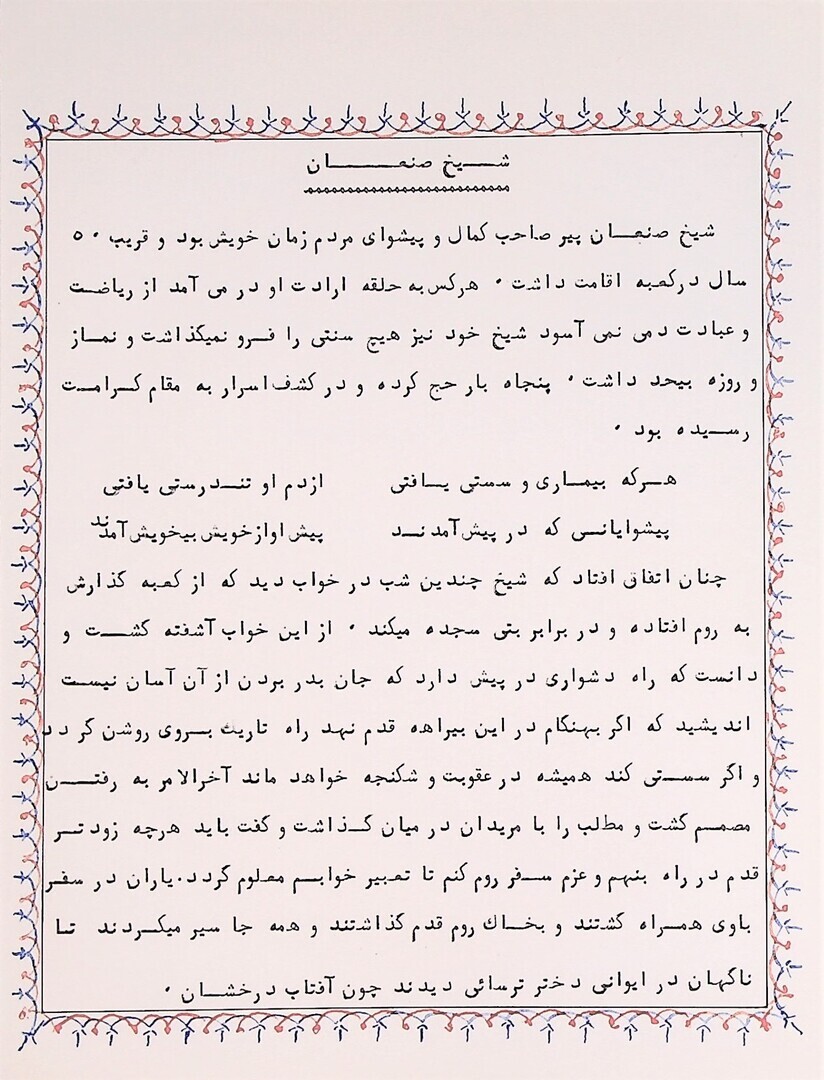 شیخ صنعان
شیخ صنعان پیر صاحب کمال و پیشوای مردم زمان خویش بود و قریب ۵۰
سال درکعبه اقامت داشت . هرکس به حلقه ارادت او در می آمد از ریاضت
و عبادت دمی نمی آسود شیخ خود نیز هیچ سنتی را فرو نمیگذاشت و نماز
و روزه بیحد داشت . پنجاه بار حج کرده و در کشف اسرار به مقام کرامت
رسیده بود .
هرکه بیماری و سستی یافتی    ازدم او تندرستی یافتی
پیشوایانی که در پیش آمدند    پیش او از خویش بیخویش آمدند
چنان اتفاق افتاد که شیخ چندین شب در خواب دید که از کعبه گذارش
به روم افتاده و در برابر بتی سجده میکند . از این خواب آشفته گشت و
دانست که راه دشواری در پیش دارد که جان بدر بردن از آن آسان نیست
اندیشید که اگر بهنگام در این بیراهه قدم نهد راه تاریک بروی روشن گردد
و اگر سستی کند همیشه در عقوبت و شکنجه خواهد ماند آخرالامر به رفتن
مصمم گشت و مطلب را با مریدان در میان گذاشت و گفت باید هرچه زودتر
قدم در راه بنهم و عزم سفر روم کنم تا تعبیر خوابم معلوم گردد.یاران در سفر
باوی همراه گشتند و بخاک روم قدم گذاشتند و همه جا سیر میکردند تا
ناگهان در ایوانی دختر ترسائی دیدند چون آفتاب درخشان .